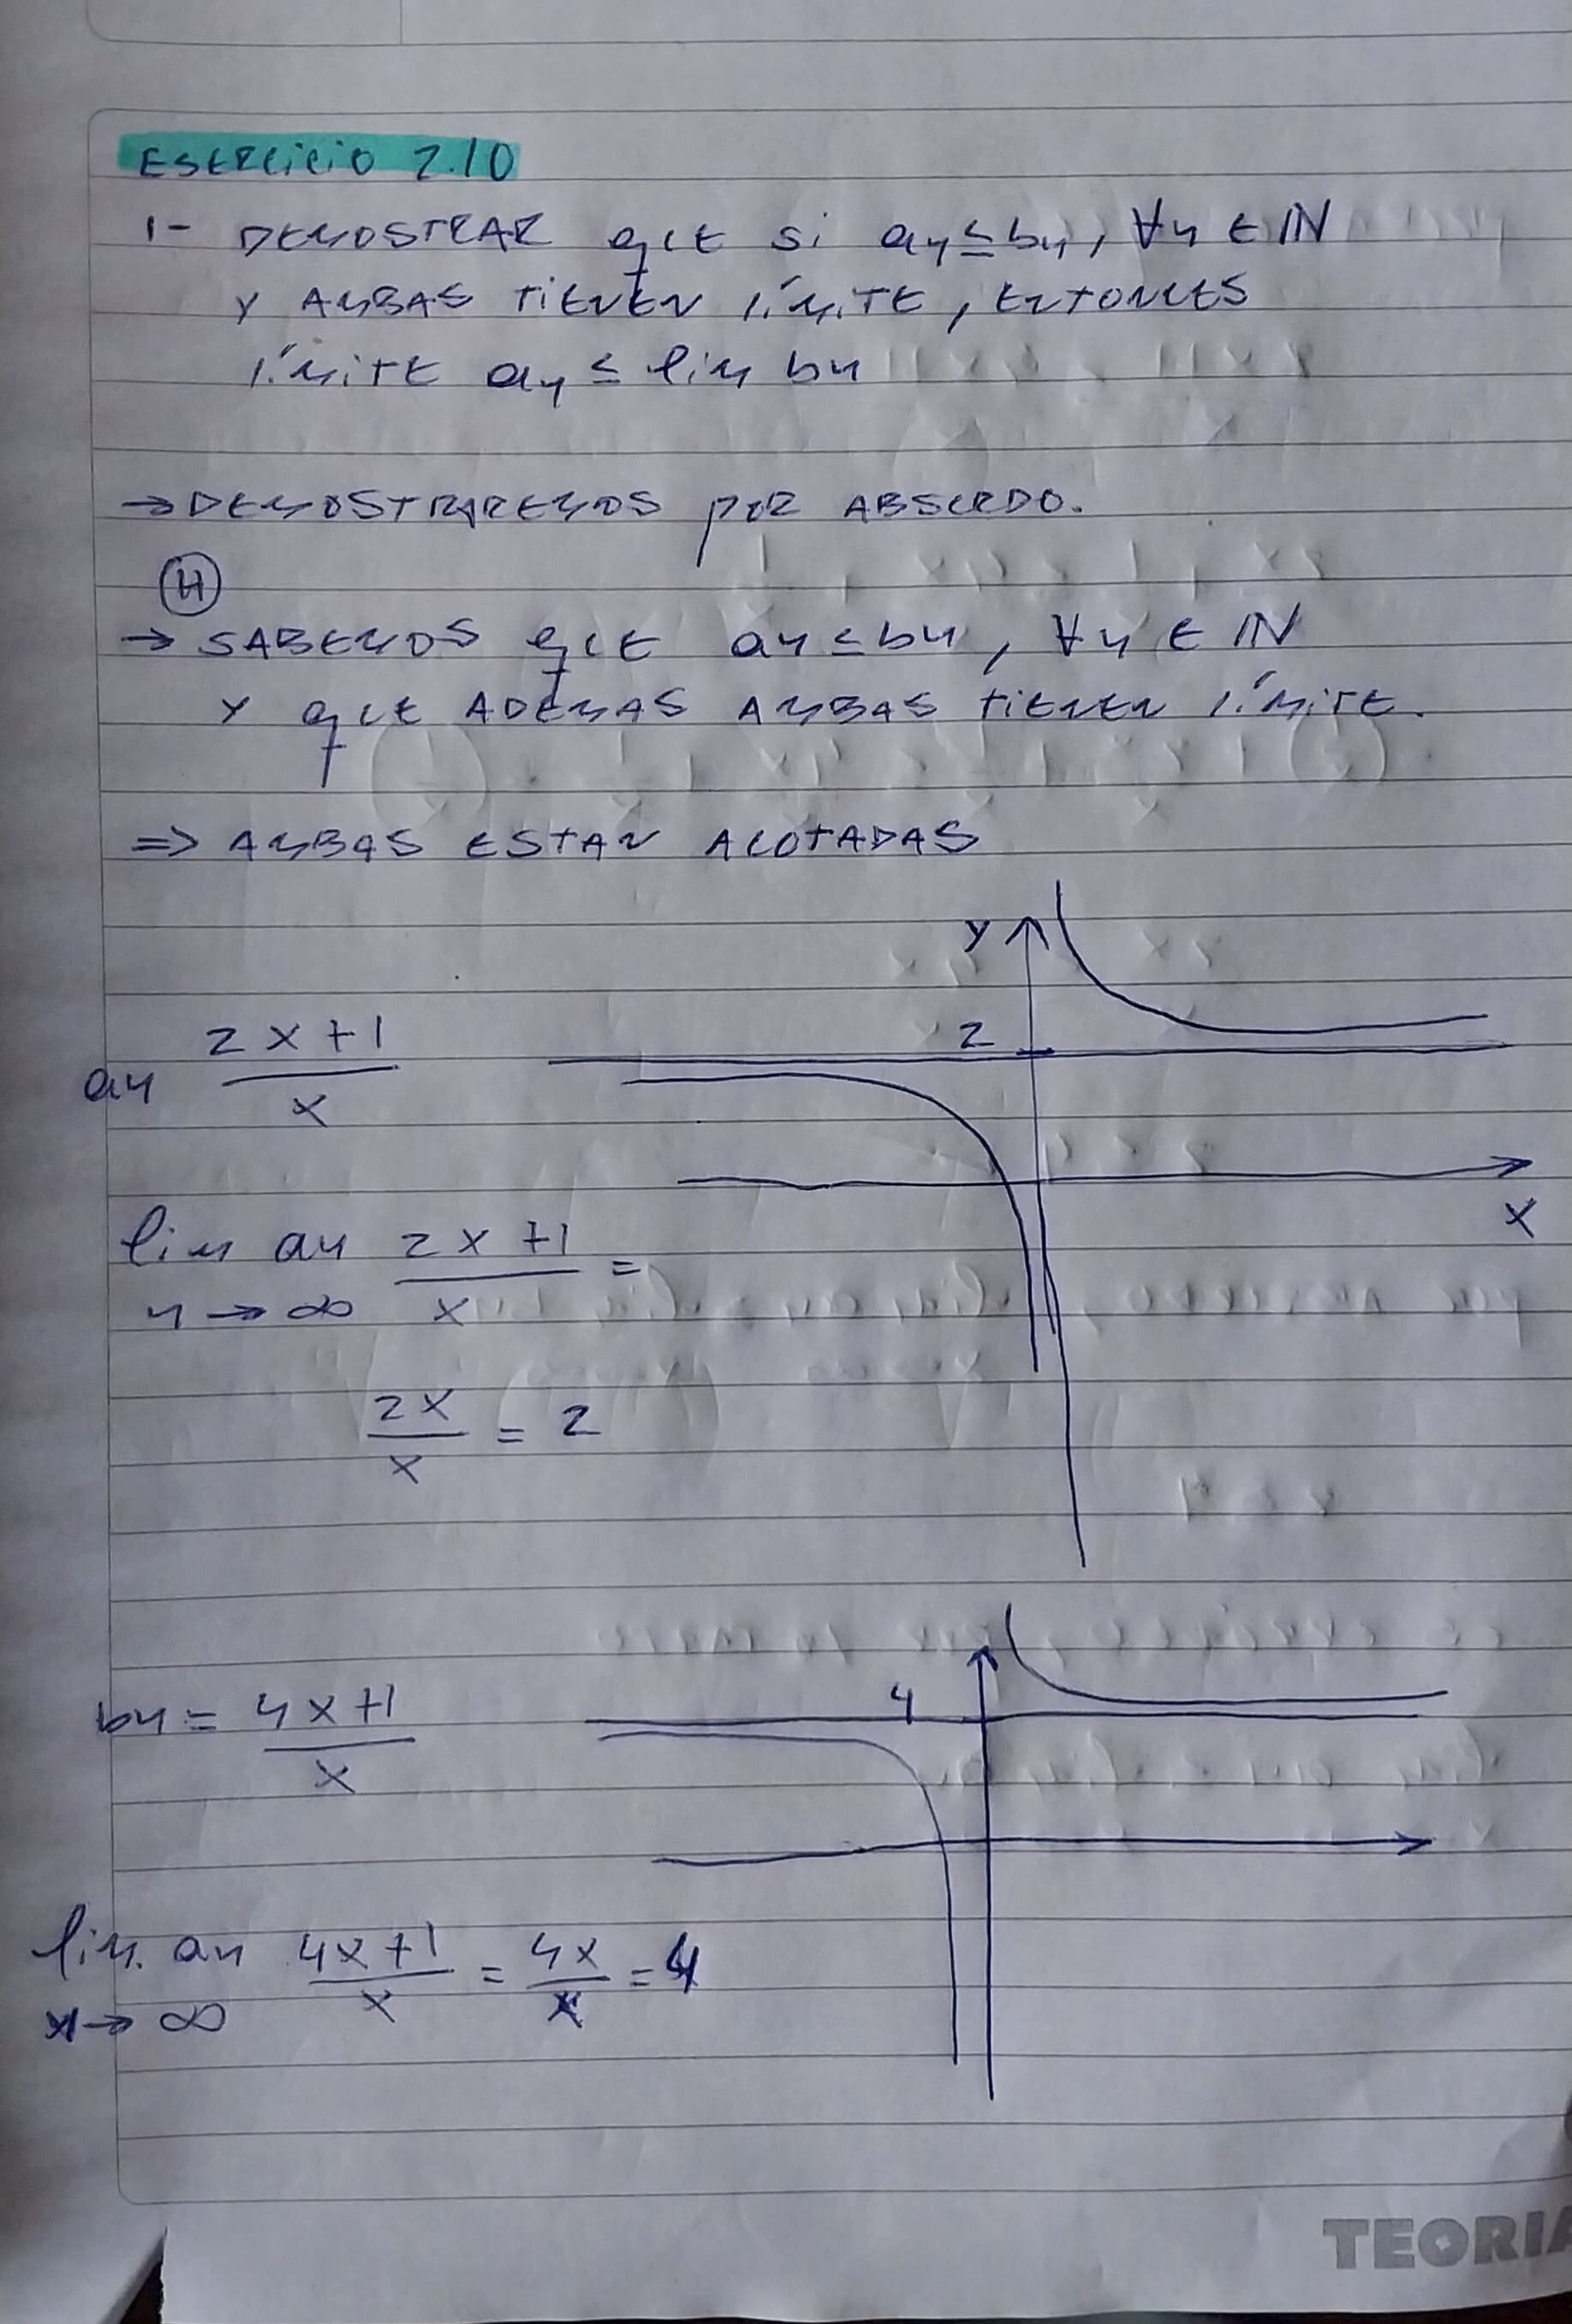 EJERCICIO 2.10
1- DEMOSTRAR QUE si an ≤ bn, ∀n ∈ IN
Y AMBAS TIENEN LÍMITE, ENTONCES
LÍMITE an ≤ lim bn
→ DEMOSTRAREMOS POR ABSURDO.
H
→ SABEMOS QUE an ≤ bn, ∀n ∈ IN
Y QUE ADEMAS AMBAS TIENEN LÍMITE.
⇒ AMBAS ESTAN ACOTADAS
y
2
an 2x+1 / x
x
lim an 2x+1 / x =
n → ∞
2x / x = 2
4
bn = 4x+1 / x
lim. an 4x+1 / x = 4x / x = 4
x → ∞
TEORIA